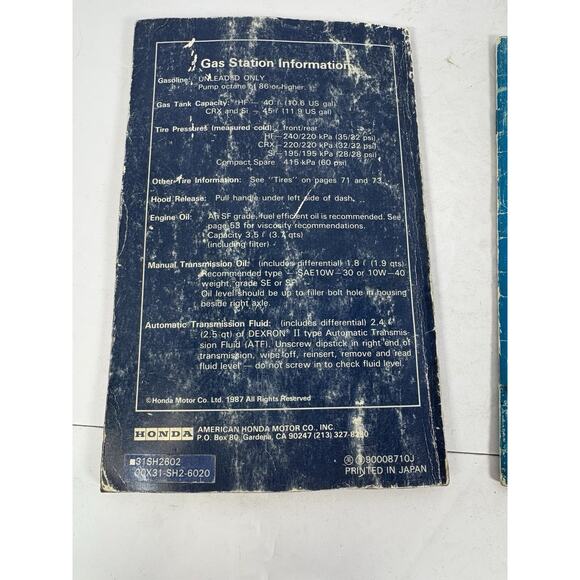 Gas Station Information
Gasoline: UNLEADED ONLY
Pump octane of 86 or higher.
Gas Tank Capacity: HF — 40 ℓ (10.6 US gal)
CRX and Si — 45 ℓ (11.9 US gal)
Tire Pressures (measured cold): front/rear
HF—240/220 kPa (35/32 psi)
CRX—220/220 kPa (32/32 psi)
Si—195/195 kPa (28/28 psi)
Compact Spare 415 kPa (60 psi)
Other Tire Information: See "Tires" on pages 71 and 73.
Hood Release: Pull handle under left side of dash.
Engine Oil: An SF grade, fuel efficient oil is recommended. See
page 53 for viscosity recommendations.
Capacity 3.5 ℓ (3.7 qts)
(including filter)
Manual Transmission Oil: (includes differential) 1.8 ℓ (1.9 qts)
Recommended type — SAE10W—30 or 10W—40
weight, grade SE or SF
Oil level should be up to filler bolt hole in housing
beside right axle.
Automatic Transmission Fluid: (includes differential) 2.4 ℓ
(2.5 qt) of DEXRON® II type Automatic Transmis-
sion Fluid (ATF). Unscrew dipstick in right end of
transmission, wipe off, reinsert, remove and read
fluid level — do not screw in to check fluid level.
©Honda Motor Co. Ltd. 1987 All Rights Reserved
HONDA AMERICAN HONDA MOTOR CO., INC.
P.O. Box 80, Gardena, CA 90247 (213) 327-8280
■31SH2602
00X31-SH2-6020
90008710J
PRINTED IN JAPAN